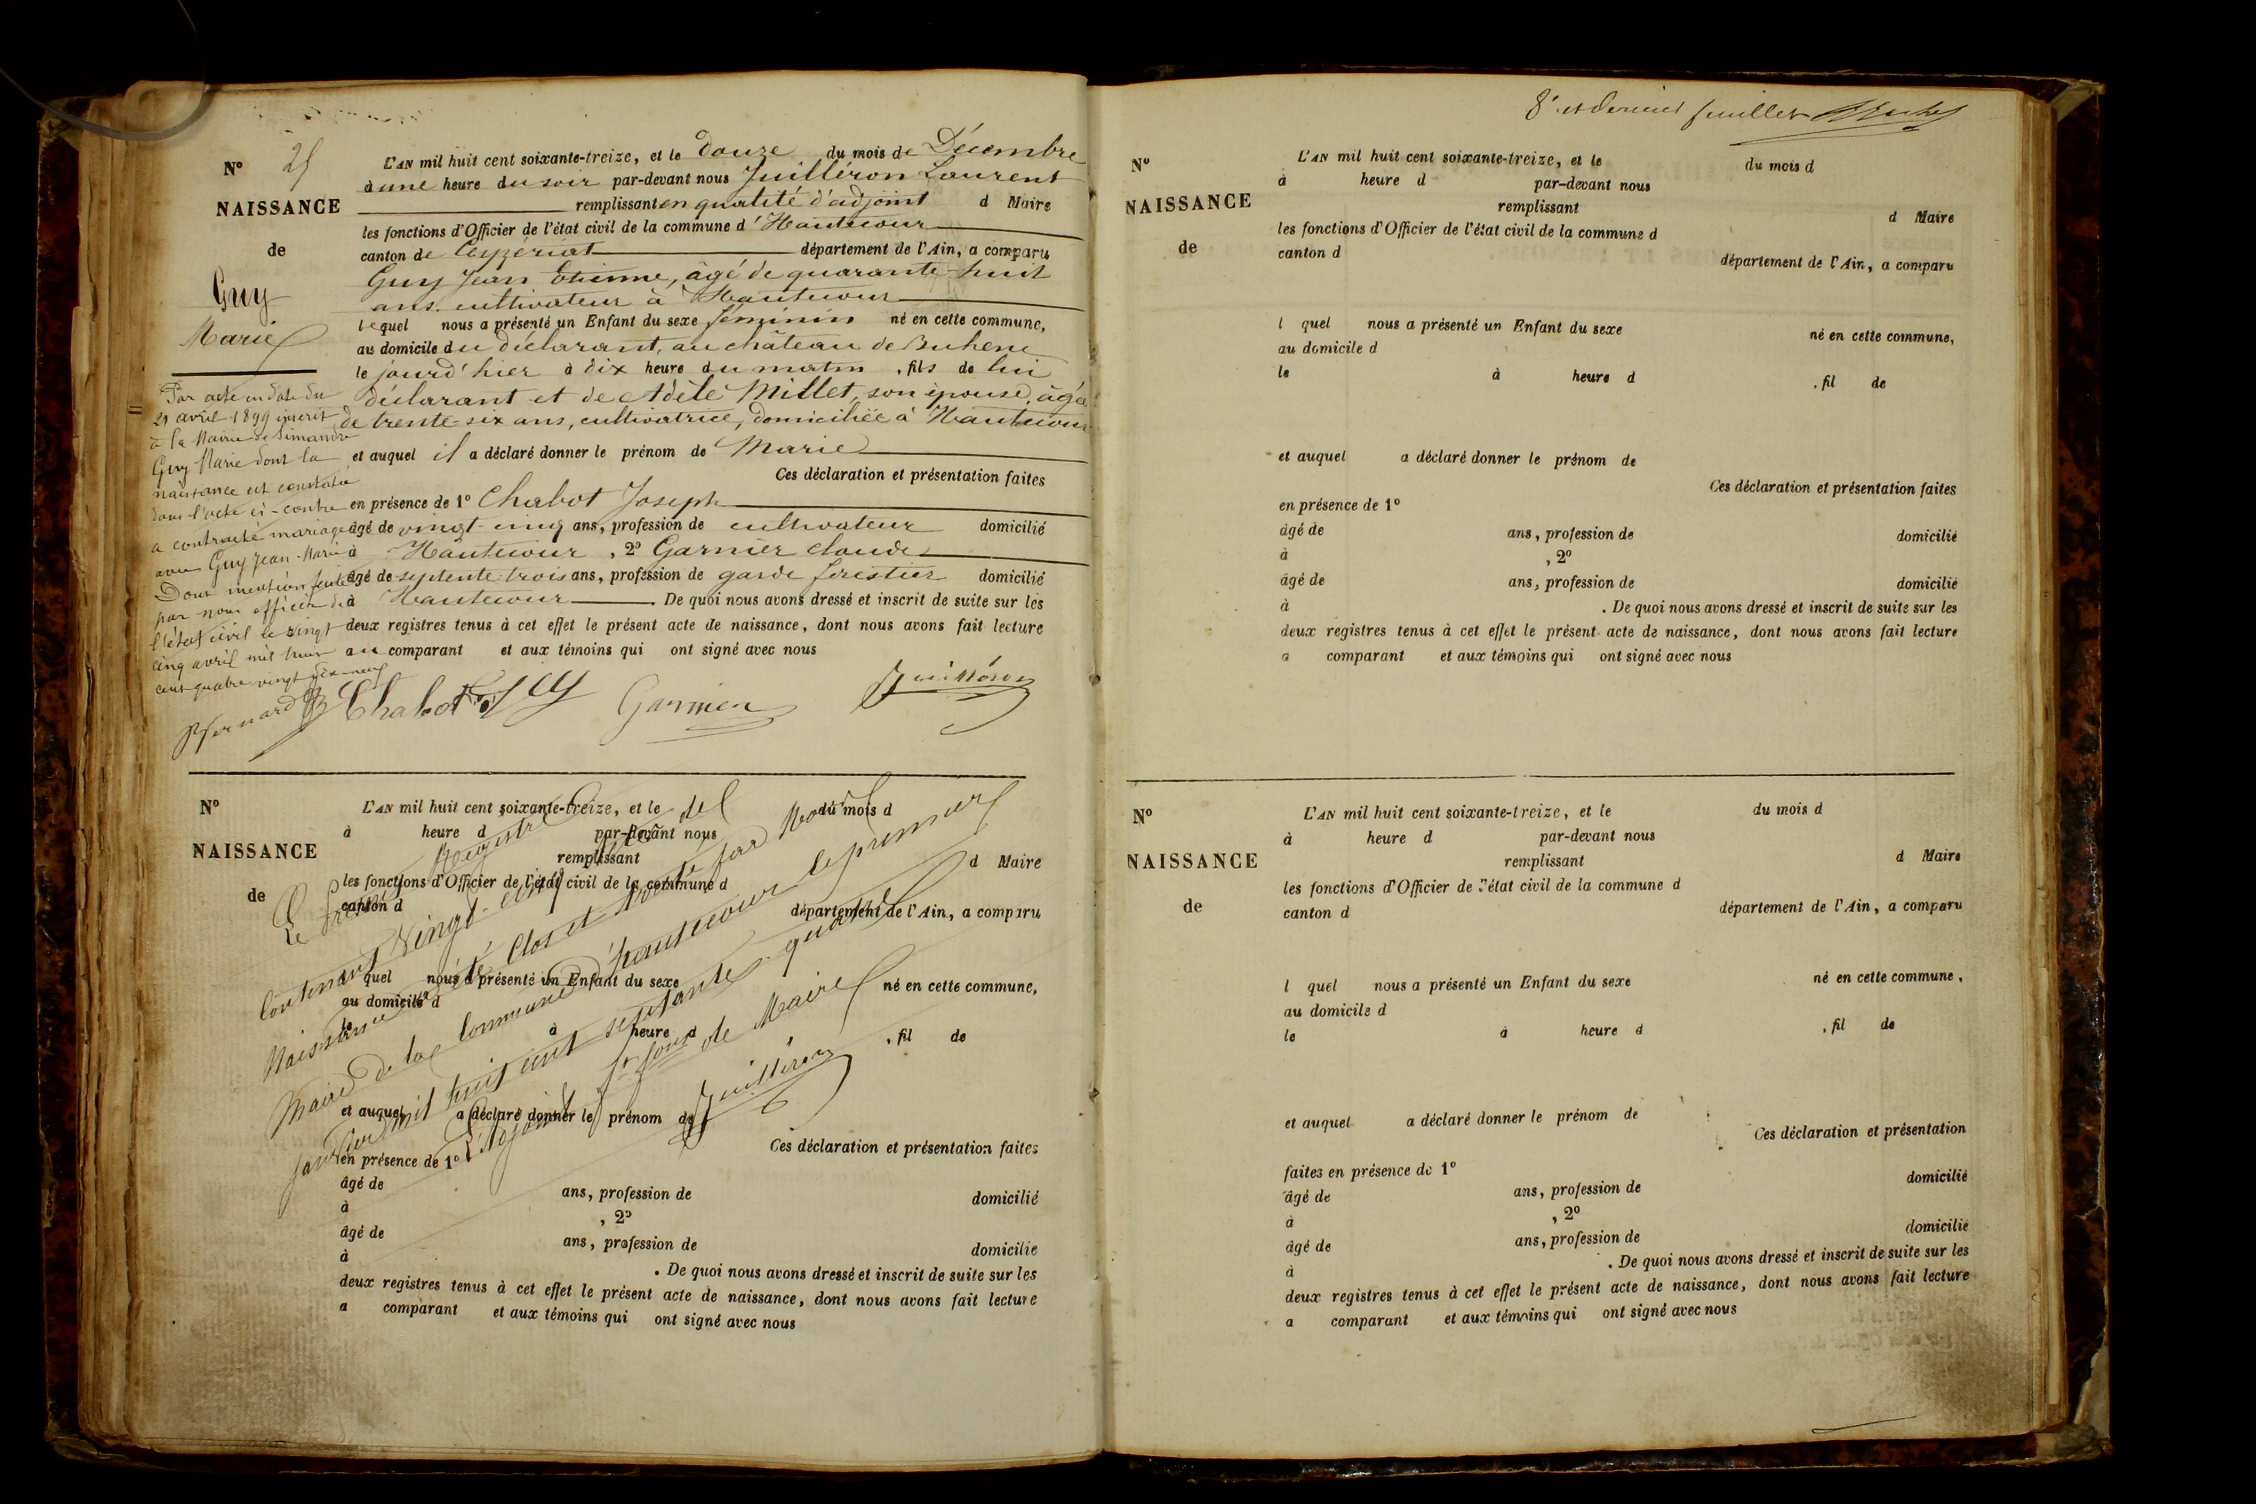 N° 25
NAISSANCE
de
Guy
Marie
L'AN mil huit cent soixante-treize, et le douze du mois de Décembre
à une heure du soir par-devant nous Juilleron Laurent
remplissant en qualité d'adjoint d Maire
les fonctions d'Officier de l'état civil de la commune d'Hautecour
canton de Ceyzériat département de l'Ain, a comparu
Guy Jean Etienne, âgé de quarante-huit
ans cultivateur à Hautecour
lequel nous a présenté un Enfant du sexe féminin né en cette commune,
au domicile du déclarant, au château de Buhene
le jourd'hier à dix heure du matin , fils de lui
déclarant et de Adèle Millet, son épouse, âgée
de trente-six ans, cultivatrice, domiciliée à Hautecour
et auquel il a déclaré donner le prénom de Marie
Ces déclaration et présentation faites
en présence de 1° Chabot Joseph
âgé de vingt-cinq ans, profession de cultivateur domicilié
à Hautecour , 2° Garnier Claude
âgé de septente trois ans, profession de garde forestier domicilié
à Hautecour . De quoi nous avons dressé et inscrit de suite sur les
deux registres tenus à cet effet le présent acte de naissance, dont nous avons fait lecture
au comparant et aux témoins qui ont signé avec nous
Par acte en date du
25 avril 1899 inscrit
à la Mairie de Simandre
Guy Marie dont la
naissance est constatée
dans l'acte ci-contre
a contracté mariage
avec Guy Jean-Marie
Dont mention faite
par nous officier de
l'état civil le vingt
cinq avril mil huit
cent quatre vingt dix-neuf
Bernard Chabot Guy Garnier Juilleron
N°
NAISSANCE
de
L'AN mil huit cent soixante-treize, et le du mois d
à heure d par-devant nous
remplissant d Maire
les fonctions d'Officier de l'état civil de la commune d
canton d département de l'Ain, a comparu
l quel nous a présenté un Enfant du sexe né en cette commune,
au domicile d
le à heure d , fil de
et auquel a déclaré donner le prénom de
Ces déclaration et présentation faites
en présence de 1°
âgé de ans, profession de domicilié
à , 2°
âgé de ans, profession de domicilié
à . De quoi nous avons dressé et inscrit de suite sur les
deux registres tenus à cet effet le présent acte de naissance, dont nous avons fait lecture
a comparant et aux témoins qui ont signé avec nous
Le présent Registre
Contenant Vingt-cinq actes de
Naissance a été Clos et arrêté par Nous
Maire de la Commune d'hautecour le premier
janvier mil huit cent septante quatre
L'adjoint fr fons de Maire
Juilleron
8e et dernier feuillet
N°
NAISSANCE
de
L'AN mil huit cent soixante-treize, et le du mois d
à heure d par-devant nous
remplissant d Maire
les fonctions d'Officier de l'état civil de la commune d
canton d département de l'Ain, a comparu
l quel nous a présenté un Enfant du sexe né en cette commune,
au domicile d
le à heure d , fil de
et auquel a déclaré donner le prénom de
Ces déclaration et présentation faites
en présence de 1°
âgé de ans, profession de domicilié
à , 2°
âgé de ans, profession de domicilié
à . De quoi nous avons dressé et inscrit de suite sur les
deux registres tenus à cet effet le présent acte de naissance, dont nous avons fait lecture
a comparant et aux témoins qui ont signé avec nous
N°
NAISSANCE
de
L'AN mil huit cent soixante-treize, et le du mois d
à heure d par-devant nous
remplissant d Maire
les fonctions d'Officier de l'état civil de la commune d
canton d département de l'Ain, a comparu
l quel nous a présenté un Enfant du sexe né en cette commune,
au domicile d
le à heure d , fil de
et auquel a déclaré donner le prénom de
Ces déclaration et présentation
faites en présence de 1°
âgé de ans, profession de domicilié
à , 2°
âgé de ans, profession de domicilié
à . De quoi nous avons dressé et inscrit de suite sur les
deux registres tenus à cet effet le présent acte de naissance, dont nous avons fait lecture
a comparant et aux témoins qui ont signé avec nous